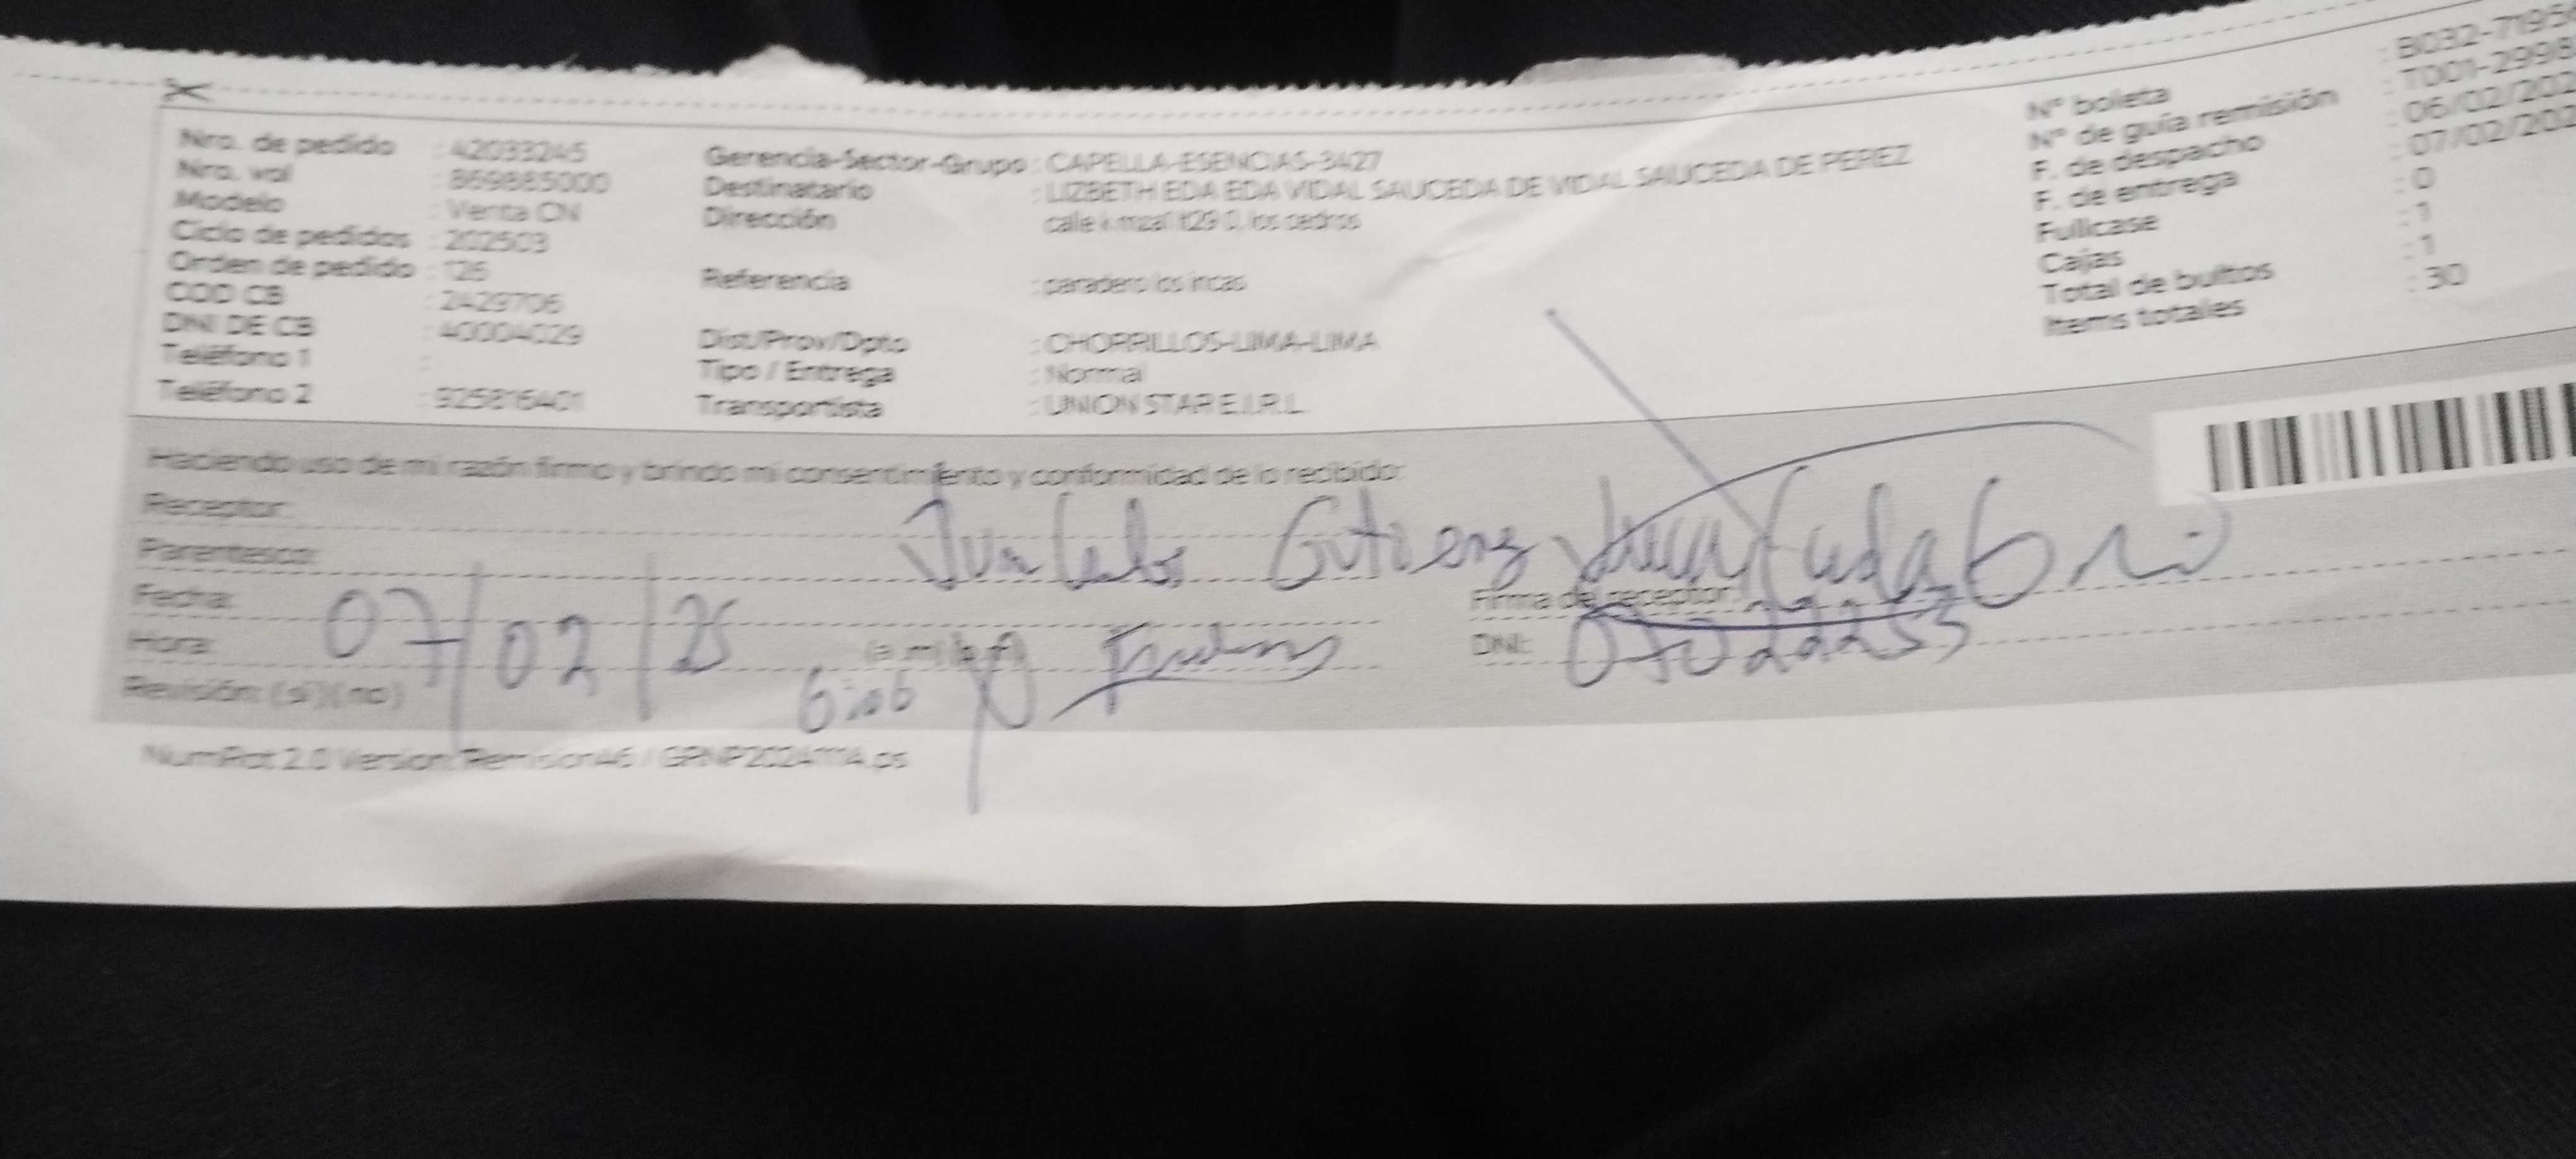 Nro. de pedido : 42033245
Nro. vol : 869885000
Modelo : Venta CN
Ciclo de pedidos : 202503
Orden de pedido : 126
COD CB : 2429706
DNI DE CB : 40004029
Teléfono 1 :
Teléfono 2 : 925816401
Gerencia-Sector-Grupo : CAPELLA-ESENCIAS-3427
Destinatario : LIZBETH EDA EDA VIDAL SAUCEDA DE VIDAL SAUCEDA DE PEREZ
Dirección : calle k mza1 lt29 0, los cedros
Referencia : paradero los incas
Dist/Prov/Dpto : CHORRILLOS-LIMA-LIMA
Tipo / Entrega : Normal
Transportista : UNION STAR E.I.R.L.
N° boleta : B032-7195
N° de guía remisión : T001-2998
F. de despacho : 06/02/202
F. de entrega : 07/02/202
Fullcase : 0
Cajas : 1
Total de bultos : 1
Items totales : 30
Haciendo uso de mi razón firmo y brindo mi consentimiento y conformidad de lo recibido:
Receptor:
Parentesco:
Fecha: 07/02/25
Hora: 6:06 (a.m) (p.
Revisión: (si) (no)
Gutierrez
Firma de receptor:
DNI:
NumRot 2.0 Version: